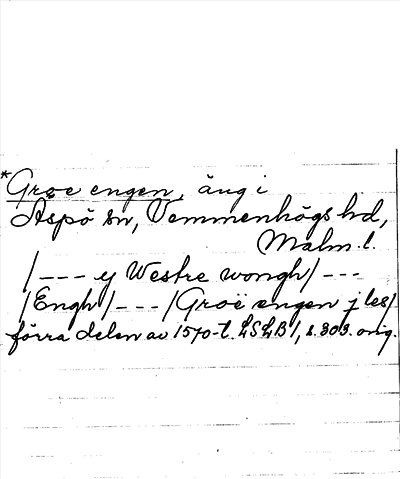 *Groe engen, äng i
Äspö sn, Vemmenhögs hd,
Malm. l.
/--- y Westre wongh/ ---
/Engh/---/Groë engen j les/
förra delen av 1570-t. LSLB 1, s. 303. orig.